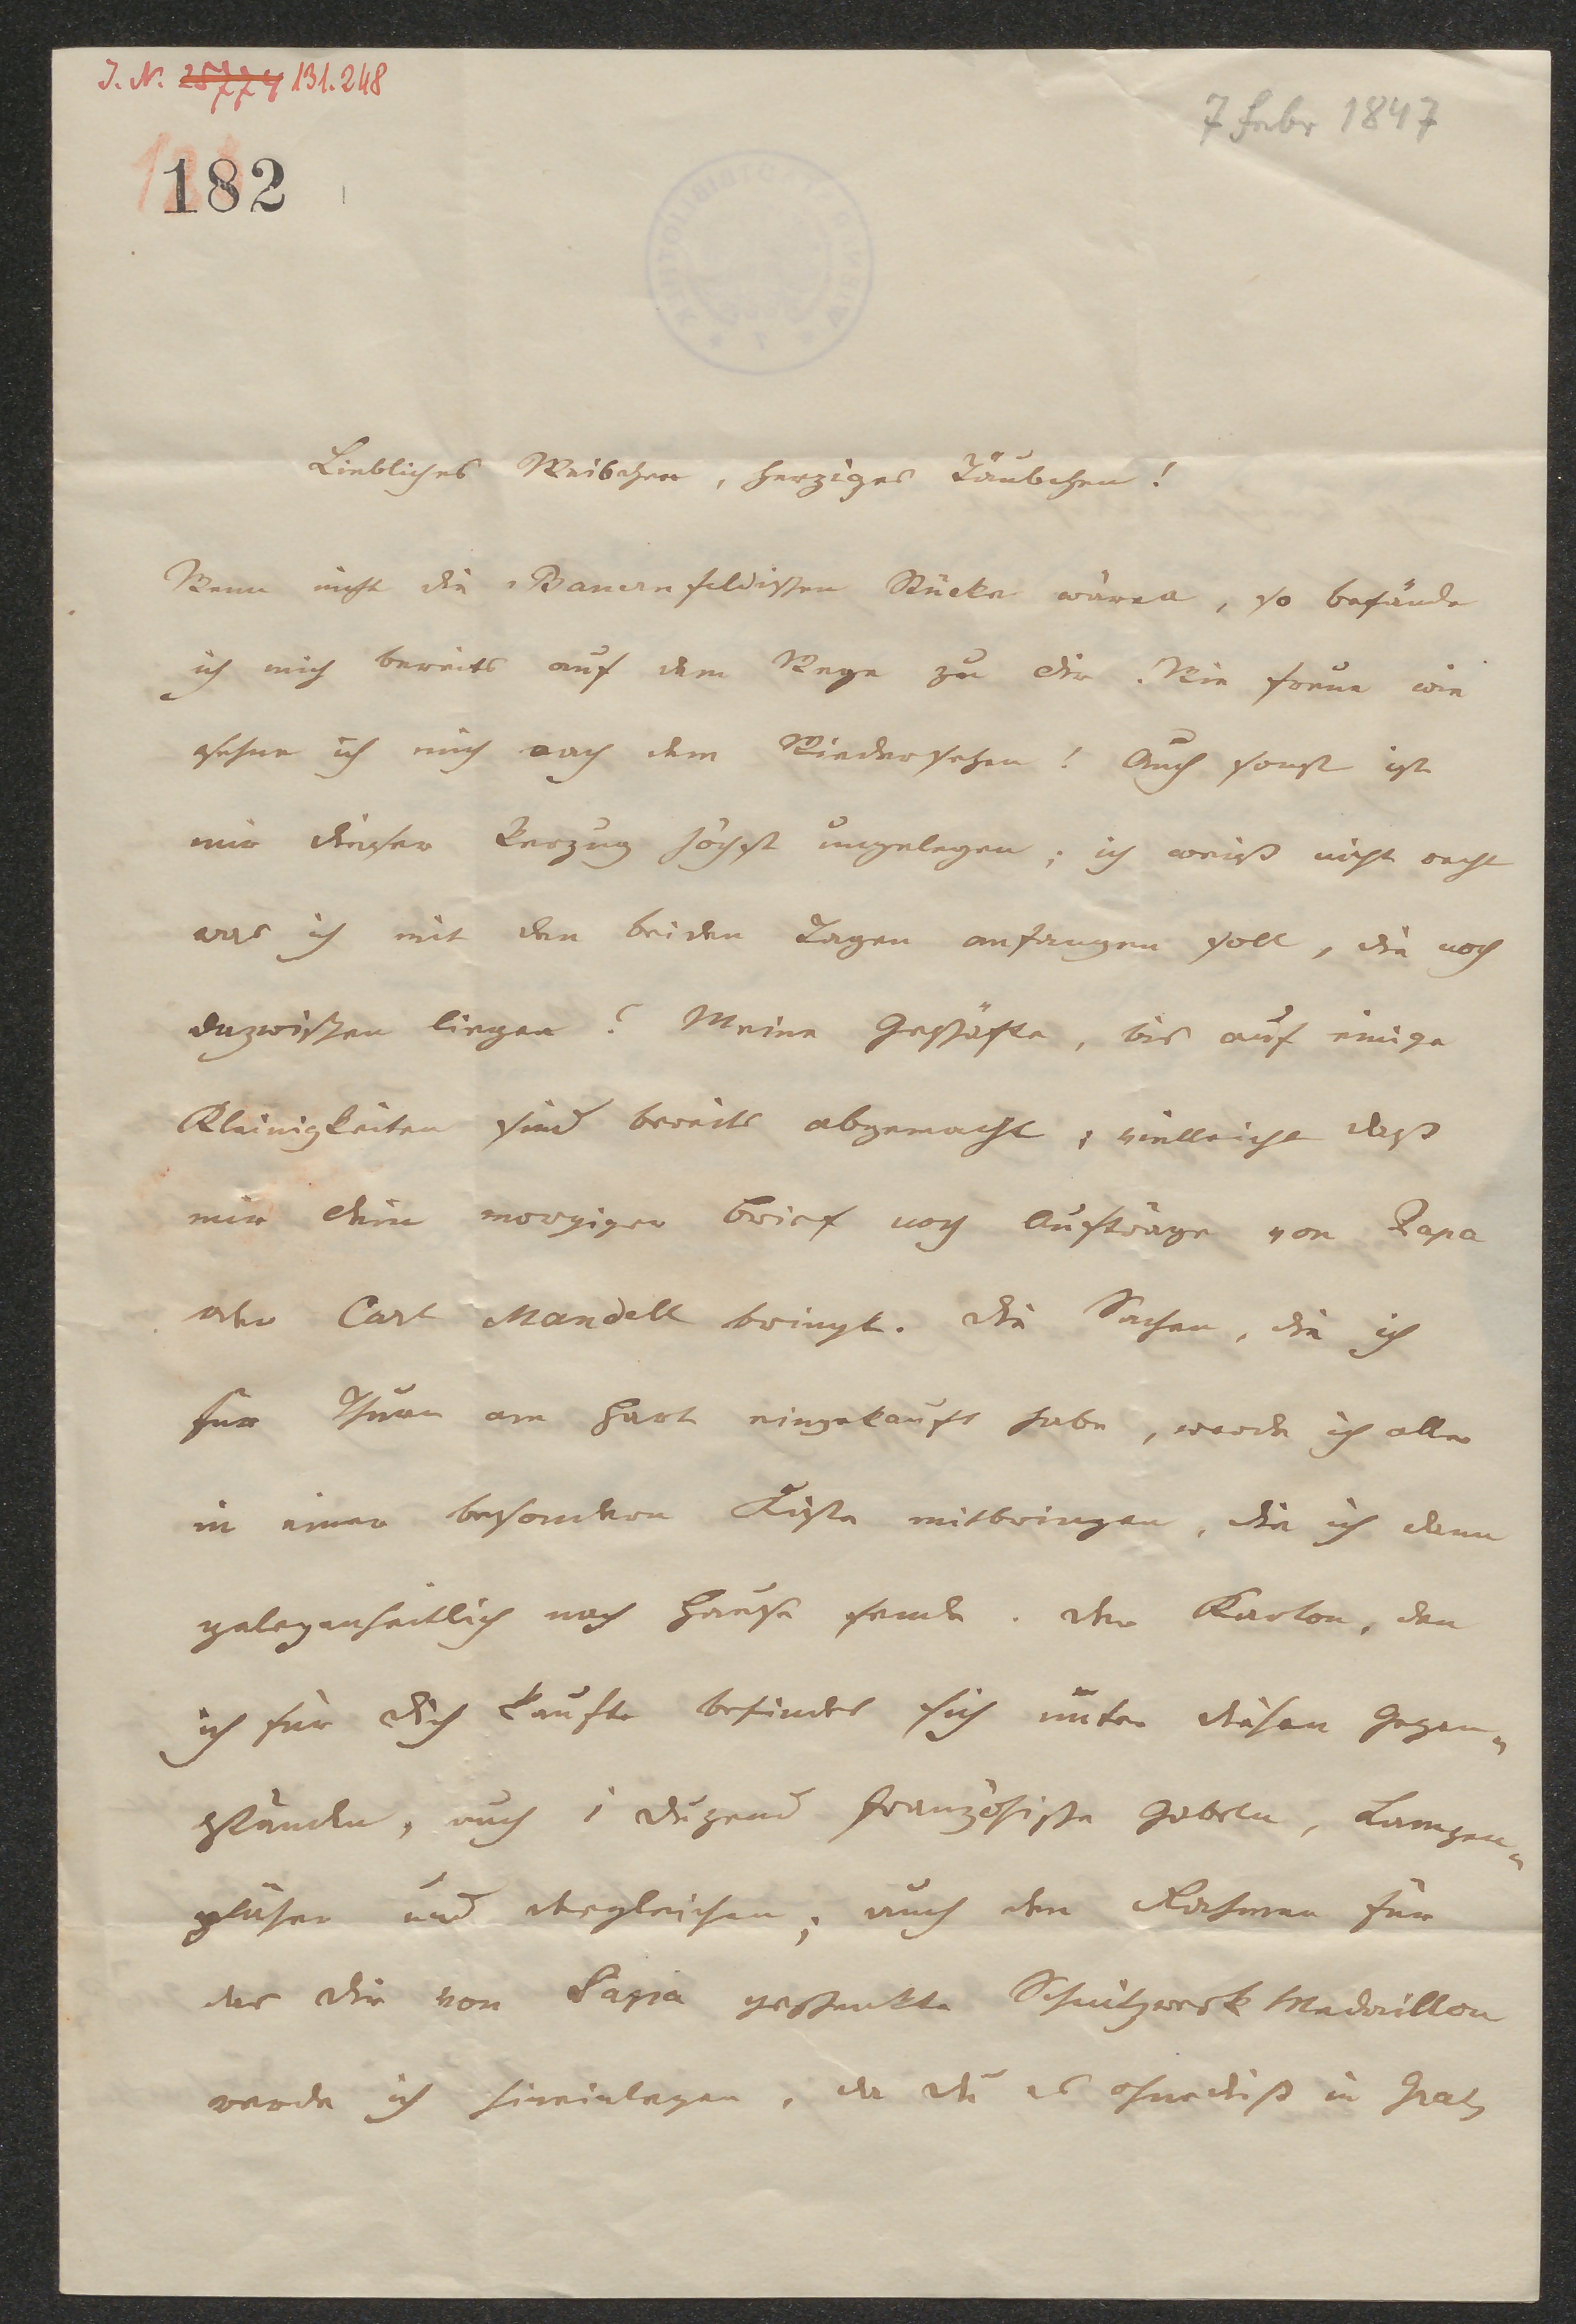 J. N. 25774 131.248
7 Febr 1847
182
Liebliches Weibchen, herziges Täubchen!
Wenn nicht die Bauernfeldischen Stücke wären, so befände
ich mich bereits auf dem Wege zu dir. Wie freue wie
sehne ich mich nach dem Wiedersehen! Auch sonst ist
mir dieser Verzug höchst ungelegen; ich weiß nicht recht
was ich mit den beiden Tagen anfangen soll, die noch
dazwischen liegen? Meine Geschäfte, bis auf einige
Kleinigkeiten sind bereits abgemacht; vielleicht daß
mir dein morgiger Brief noch Aufträge von Papa
oder Carl Mandell bringt. Die Sachen, die ich
für Thurn am Hart eingekauft habe, werde ich alle
in einer besondern Kiste mitbringen, die ich dann
gelegenheitlich nach Hause sende. Der Karton, den
ich für dich kaufte befindet sich unter diesen Gegen„
ständen, auch 1 Duzend französische Gabeln, Lampen„
gläser und dergleichen; auch den Rahmen für
das dir von Papa geschenkte Schnitzwerk Medaillon
werde ich hineinlegen, da du es ohnediß in Gratz